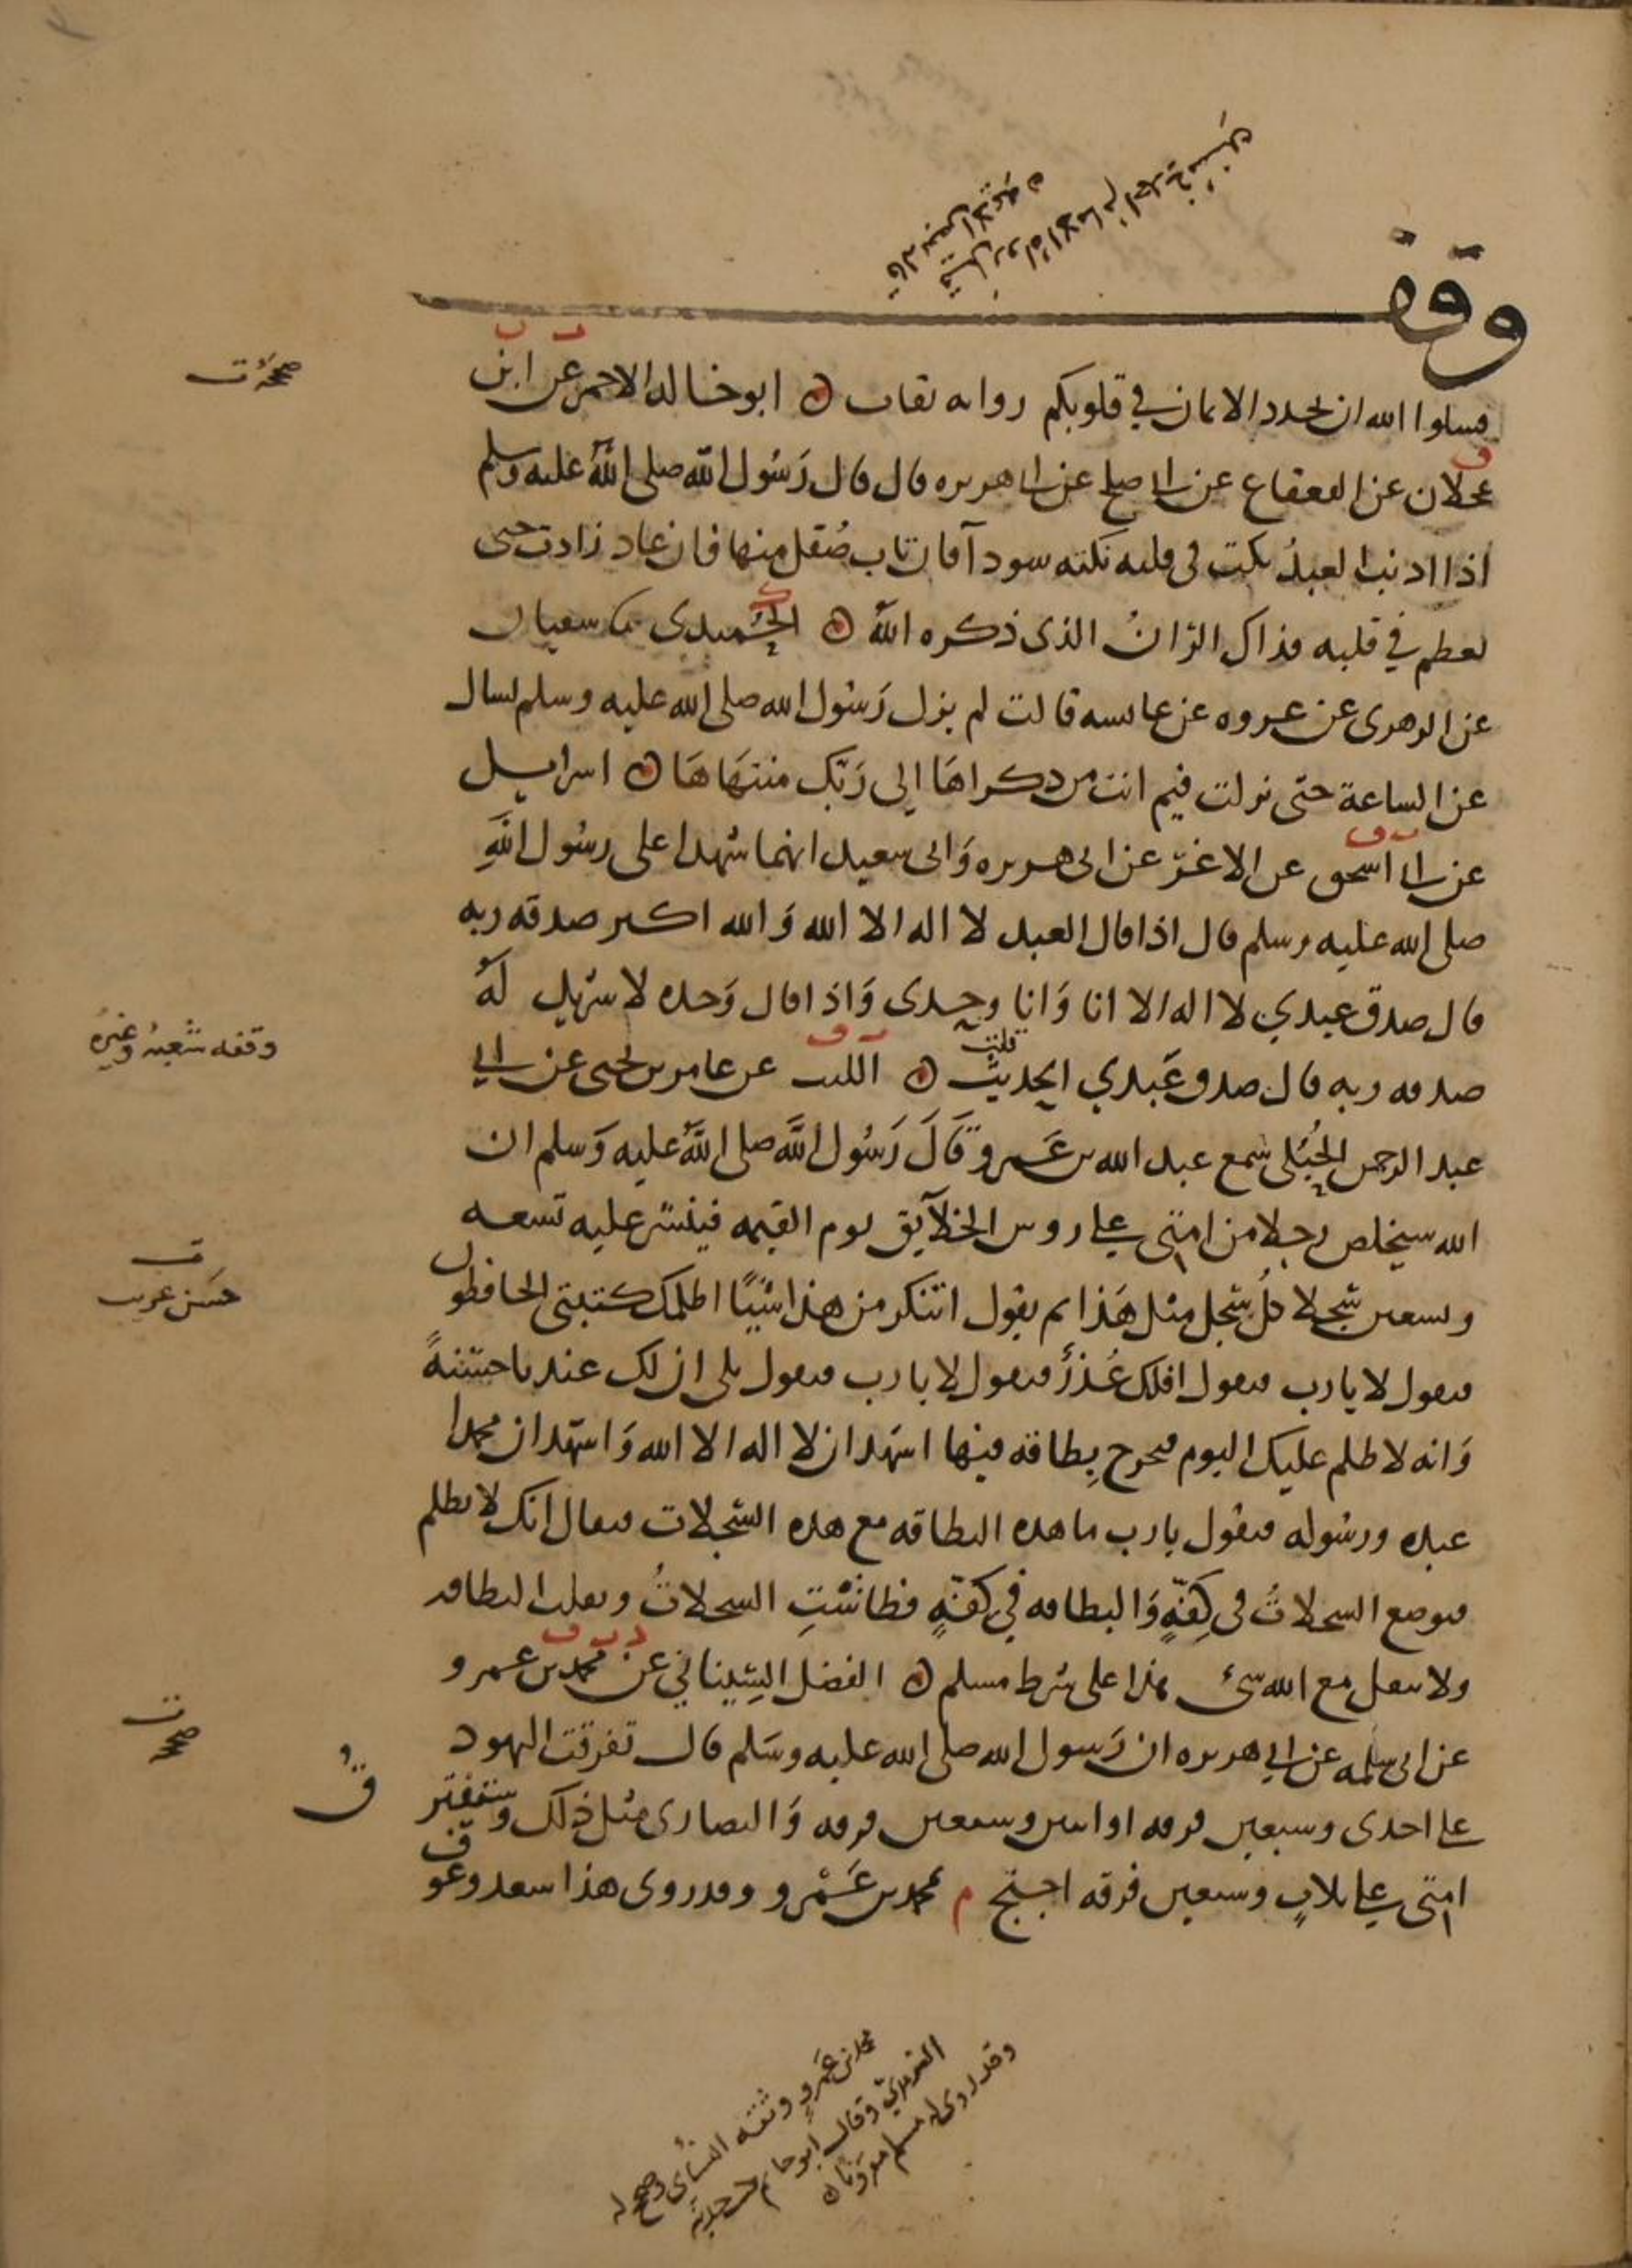 وقف
فسلوا الله ان يجدد الايمان في قلوبكم رواته ثقات ابو خالد الاحمر عن ابن
عجلان عن القعقاع عن ابي صلح عن ابي هريره قال قال رسول الله صلى الله عليه وسلم
اذا اذنب العبد نكت في قلبه نكته سودآ فان تاب صُقل منها فان عاد زادت حتى
تعظم في قلبه فذاك الرّانُ الذي ذكره الله الحُميدي سفيان
عن الزهري عن عروه عن عائشه قالت لم يزل رَسُول الله صلى الله عليه وسلم يسال
عن الساعة حتى نزلت فيم انت من ذكراها إلى رَبّك منتهَاهَا اسراييل
عن ابي اسحق عن الاغرّ عن ابي هريره وَابي سعيد انهما شهدا على رسُول اللهِ
صلى الله عليه وسلم قال اذا قال العبد لا اله الا الله وَالله اكبر صدقه ربه
قال صدق عبدي لا اله الا انا وَانا وحدي وَاذا قال وَحده لا شريك لهُ
صدقه ربه قال صدق عَبدي الحديث قلت الليث عن عامر بن يحيى عن ابي
عبد الرحمن الحُبُلي سمع عبد الله بن عَمرو قَالَ رَسُول اللهِ صلى اللهُ عليه وَسلم ان
الله سيخلص رجلا من امتي على روس الخلآيق يوم القيمه فينشر عليه تسعه
وتسعين سجلا كلُ سجل مثل هَذا ثم يقول اتنكر من هذا شيًا اظلمك كتبتي الحافظون
فيقول لا يارب فيقول افلك عُذرٌ فيقول لا يا رب فيقول بلى ان لك عندنا حسَنةً
وَانه لا ظلم عليك اليوم فيخرج بِطاقه فيها اشهد ان لا اله الا الله وَاشهد ان محمدا
عبده ورسُوله فيقول يارب ما هذه البطاقه مع هذه السِّجلات فيقال انك لا تظلم
فتوضع السجلاتُ في كِفّهٍ وَالبطاقه في كفّهٍ فطاشَتِ السجلاتُ وثقلت البطاقه
ولا يثقل مع الله شئ هذا على شرط مسلم الفضل السِّيناني عن محمد بن عمرو
عن ابي سلمه عن ابي هريره ان رَسول الله صلى الله عليه وسَلم قال تفرقت اليهود
على احدى وسبعين فرقه او اثنين وسبعين فرقه وَالنصارى مثل ذلك وستفترق
امتي على ثلاثٍ وسبعين فرقه احتج م بمحمد بن عَمْرو وقد روى هذا سعد وعوف
صححه ت
وقفه شعبه وغيره
ت
حسن غريب
ت
صححه
محمد بن عَمرو وثقه النسَاي وصحح له
الترمذيّ وقال ابو حاتم
وقد روى له مسلم مقرونا